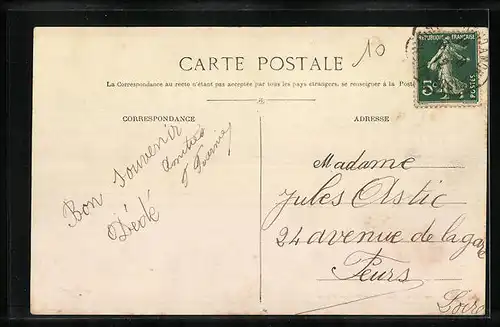 10
CARTE POSTALE
La Correspondance au recto n'étant pas acceptée par tous les pays étrangers, se renseigner à la Poste
REPUBLIQUE FRANÇAISE
5c
POSTES
CORRESPONDANCE
ADRESSE
Bon souvenir
Dédé
Amitiés
Madame
Jules Astic
24 avenue de la gare
Feurs
Loire